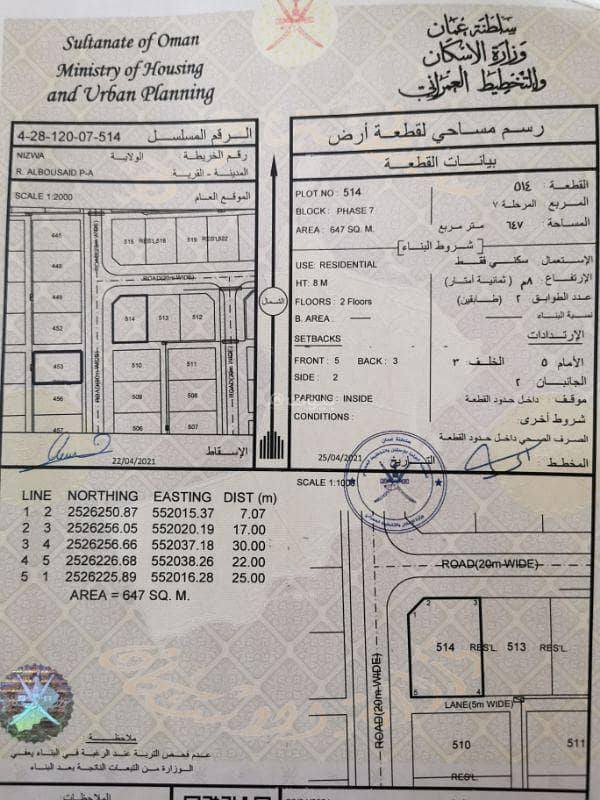 Sultanate of Oman
Ministry of Housing
and Urban Planning
سلطنة عمان
وزارة الإسكان
والتخطيط العمراني
4-28-120-07-514 الرقم المسلسل
NIZWA الولاية رقم الخريطة
R. ALBOUSAID P-A المدينة - القرية
SCALE 1:2000 الموقع العام
445
448
449
452
453
456
457
515 RES'L 516
519 RES'L 522
ROAD(20m WIDE)
514 513 512
510 511
509 508
506 507
ROAD(20m WIDE)
الإسقاط
22/04/2021
الشمال
رسم مساحي لقطعة أرض
بيانات القطعة
PLOT NO : 514 القطعة : ٥١٤
BLOCK : PHASE 7 المربع المرحلة ٧
AREA : 647 SQ. M. المساحة : ٦٤٧ متر مربع
شروط البناء
USE: RESIDENTIAL الإستعمال سكني فقط
HT: 8 M الإرتفاع: ٨م (ثمانية أمتار)
FLOORS : 2 Floors عدد الطوابق ٢ (طابقين)
B. AREA : نسبة البناء:
SETBACKS الإرتدادات
FRONT : 5 BACK : 3 الأمام ٥ الخلف ٣
SIDE : 2 الجانبان ٢
PARKING : INSIDE موقف: داخل حدود القطعة
CONDITIONS : شروط أخرى:
الصرف الصحي داخل حدود القطعة
25/04/2021 التاريخ المخطط:
LINE NORTHING EASTING DIST (m)
1 2 2526250.87 552015.37 7.07
2 3 2526256.05 552020.19 17.00
3 4 2526256.66 552037.18 30.00
4 5 2526226.68 552038.26 22.00
5 1 2526225.89 552016.28 25.00
AREA = 647 SQ. M.
SCALE 1:1000
ROAD(20m WIDE)
1 2 3 4 5
514 RES'L 513 RES'L
LANE(5m WIDE)
ROAD(20m WIDE)
510 511
RES'L
ملاحظة
عدم فحص التربة عند الرغبة في البناء يعفي
الوزارة من التبعات الناتجة بعد البناء
الملاحظات